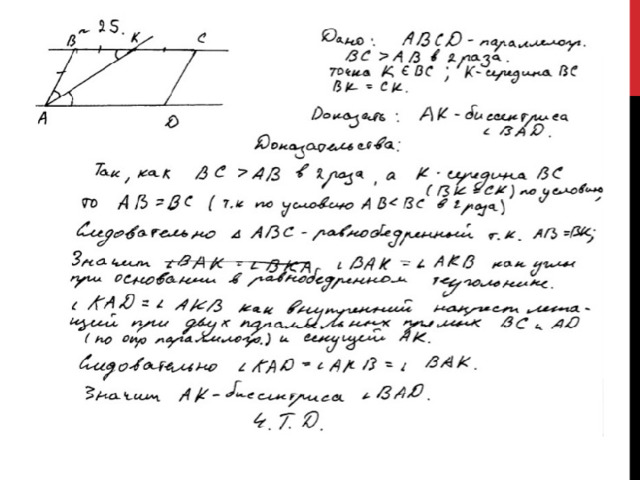 ~ 25.
B K C
A D
Дано: ABCD - параллелогр.
BC > AB в 2 раза.
точка K ∈ BC ; K - середина BC
BK = CK.
Доказать: AK - биссектриса
∠ BAD.
Доказательства:
Так, как BC > AB в 2 раза, а K - середина BC
(BK = CK) по условию,
то AB = BC (т.к по условию AB < BC в 2 раза)
Следовательно △ ABC - равнобедренный т.к. AB = BK;
Значит ∠BAK = ∠BKA, ∠BAK = ∠AKB как углы
при основании в равнобедренном теуголнике.
∠ KAD = ∠ AKB как внутренний накрест лежа-
щей при двух паралильных прямых BC и AD
(по опр паралилогр.) и секущей AK.
Следовательно ∠KAD = ∠AKB = ∠ BAK.
Значит AK - биссектриса ∠BAD.
Ч. Т. D.